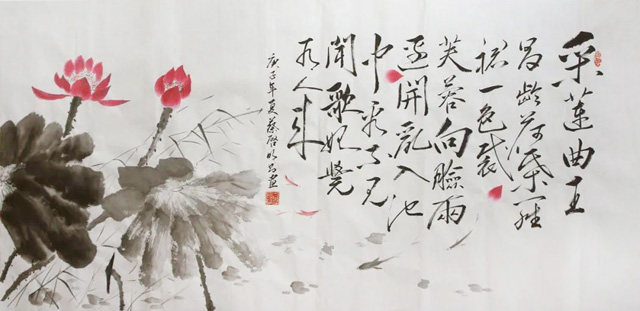 采蓮曲王
昌齡荷葉羅
裙一色裁
芙蓉向臉兩
邊開亂入池
中看不見
聞歌始覺
有人来
庚子年夏蔡啓明書畫